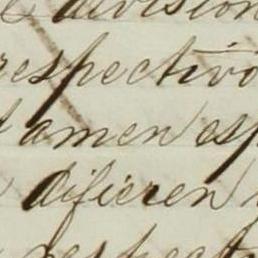 division
respectivo
amen esp
difieren
respect